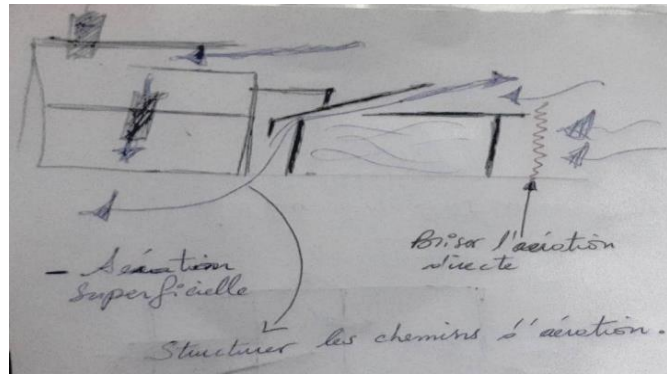 - Aération
superficielle
Briser l'aération
directe
Structurer les chemins d'aération.